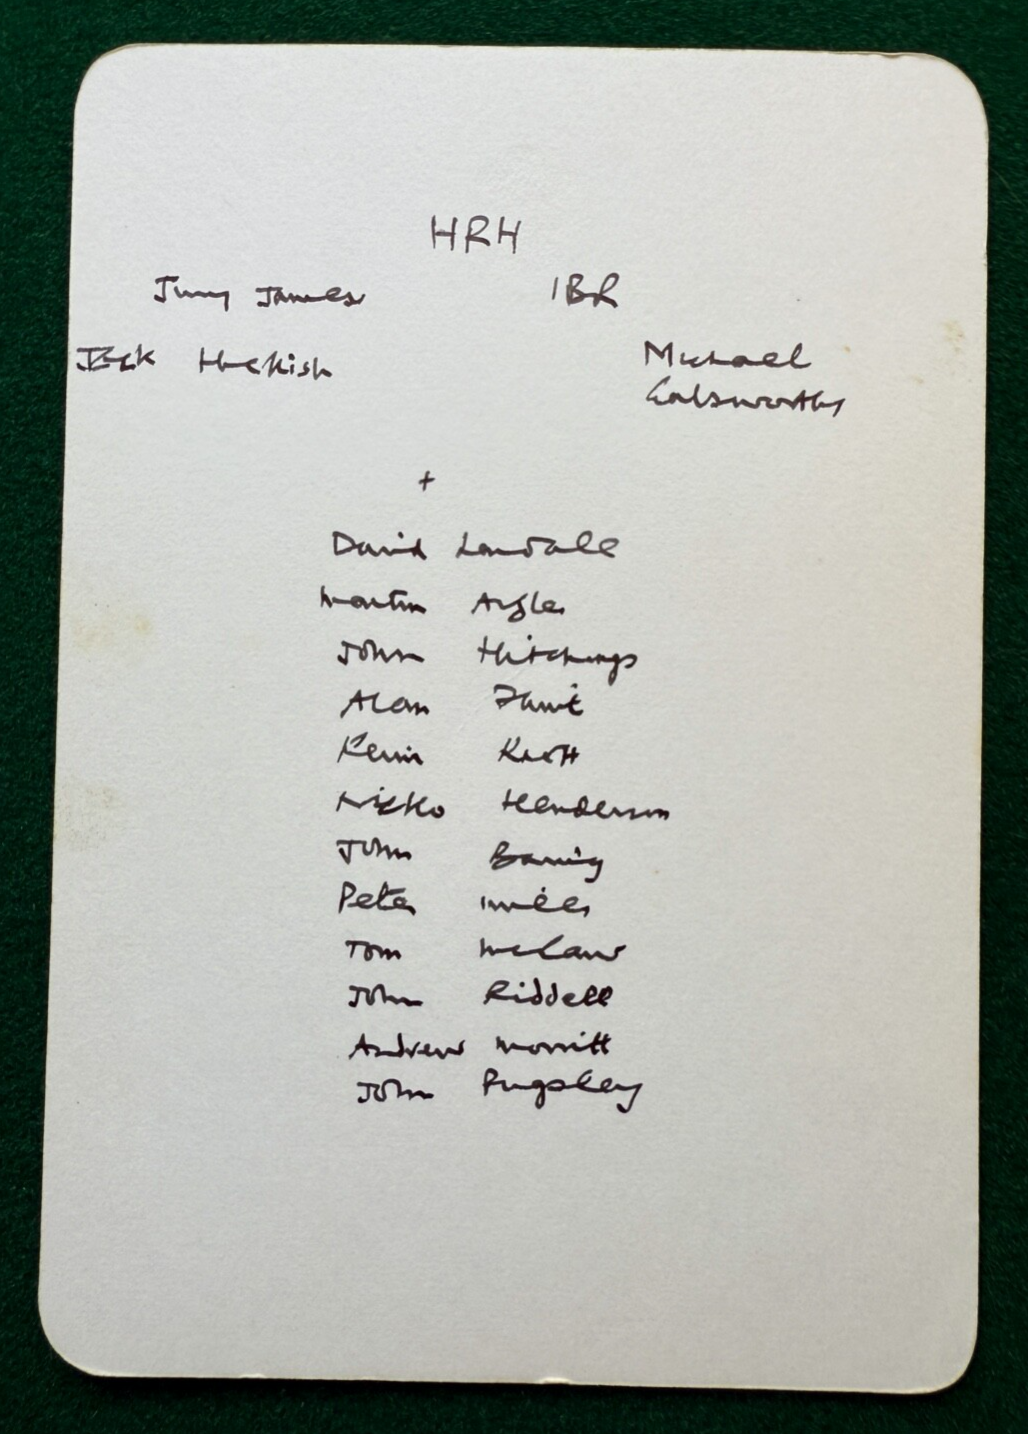 HRH
Jimmy James IBR
Jack Michael
Galsworthy
+
David Landale
Martin Argles
John Hitchings
Alan
Kevin Knott
Nicko Henderson
John Baring
Peter
Tom
John Riddell
Andrew Morritt
John Pugsley